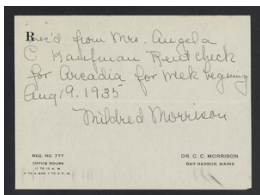 Rec'd from Mrs. Angela
C Kaufman Rent check
for Arcadia for week begining
Aug 9. 1935
Mildred Morrison
REG. NO 777
OFFICE HOURS
DR. C. C. MORRISON
BAR HARBOR, MAINE